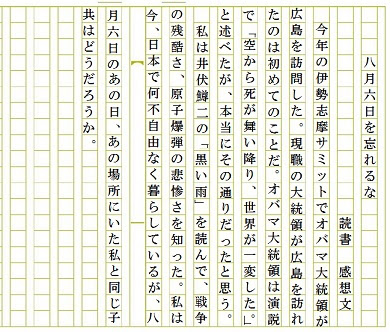 八月六日を忘れるな
読書　感想文
今年の伊勢志摩サミットでオバマ大統領が
広島を訪問した。現職の大統領が広島を訪れ
たのは初めてのことだ。オバマ大統領は演説
で「空から死が舞い降り、世界が一変した。」
と述べたが、本当にその通りだったと思う。
私は井伏鱒二の「黒い雨」を読んで、戦争
の残酷さ、原子爆弾の悲惨さを知った。私は
今、日本で何不自由なく暮らしているが、八
月六日のあの日、あの場所にいた私と同じ子
共はどうだろうか。